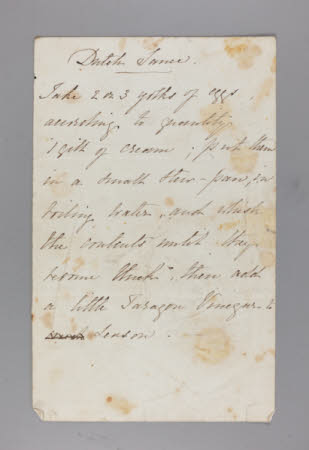 Dutch Sauce.
Take 2 or 3 yolks of eggs
according to quantity
1 gill of cream, put them
in a small stew-pan, in
boiling water, and whisk
the contents until they
become thick, then add
a little Taragon Vinegar to
season.